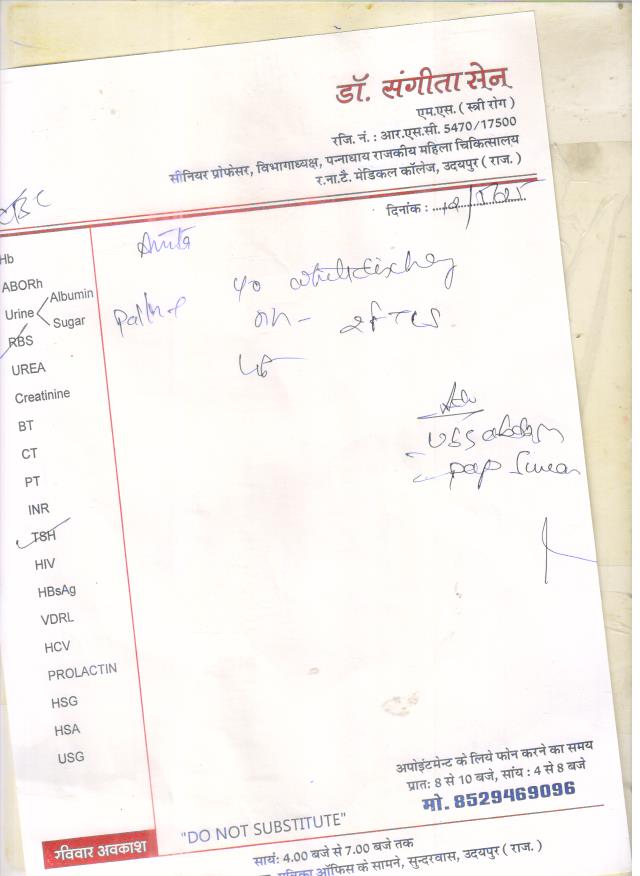 डॉ. संगीता सेन
एम.एस. ( स्त्री रोग )
रजि. नं. : आर.एस.सी. 5470/17500
सीनियर प्रोफेसर, विभागाध्यक्ष, पन्नाधाय राजकीय महिला चिकित्सालय
र.ना.टै. मेडिकल कॉलेज, उदयपुर ( राज. )
दिनांक :
CBC
Hb
ABORh
Urine Albumin
Sugar
RBS
UREA
Creatinine
BT
CT
PT
INR
TSH
HIV
HBsAg
VDRL
HCV
PROLACTIN
HSG
HSA
USG
Adv
USG abdomen
pap Smear
अपोइंटमेन्ट के लिये फोन करने का समय
प्रातः 8 से 10 बजे, सांय : 4 से 8 बजे
मो. 8529469096
"DO NOT SUBSTITUTE"
रविवार अवकाश
सायं: 4.00 बजे से 7.00 बजे तक
ऑफिस के सामने, सुन्दरवास, उदयपुर ( राज. )